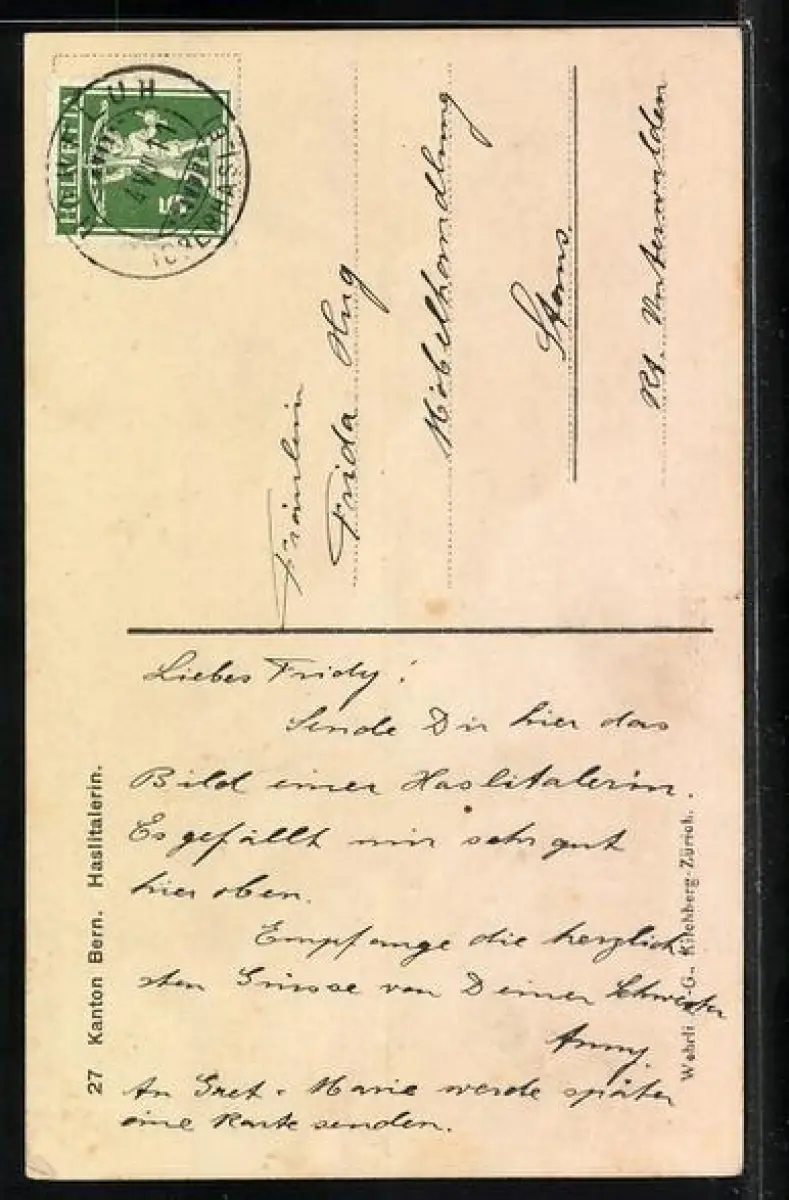 HELVETIA
5
Fräulein
Frida Hug
Möbelhandlung
Stans.
Kt. Unterwalden
Liebes Fridy!
Sende Dir hier das
Bild einer Haslitalerin.
Es gefällt mir sehr gut
hier oben.
Empfange die herzlich
sten Grüsse von Deiner Schwester
Anny.
An Gret - Marie werde später
eine Karte senden.
27 Kanton Bern. Haslitalerin.
Wehrli A.-G., Kilchberg-Zürich.